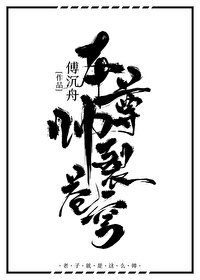 至尊
帅裂
苍穹
傅沉舟
[作品]
·老子就是这么帅·